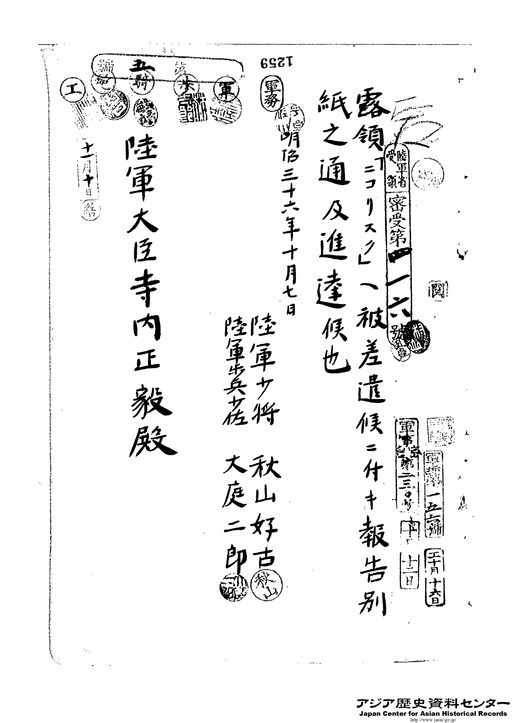 1259
陸軍省
受領
密受第一一六號
露領「ニコリスク」ヘ被差遣候ニ付キ報告別
紙之通及進達候也
明治三十六年十月七日
陸軍少将 秋山好古
秋山
陸軍歩兵少佐 大庭二郎
陸軍大臣寺内正毅殿
軍務
軍
歩
騎
五
工
十一月十日
十二日
十月十六日
アジア歴史資料センター
Japan Center for Asian Historical Records
http://www.jacar.go.jp/